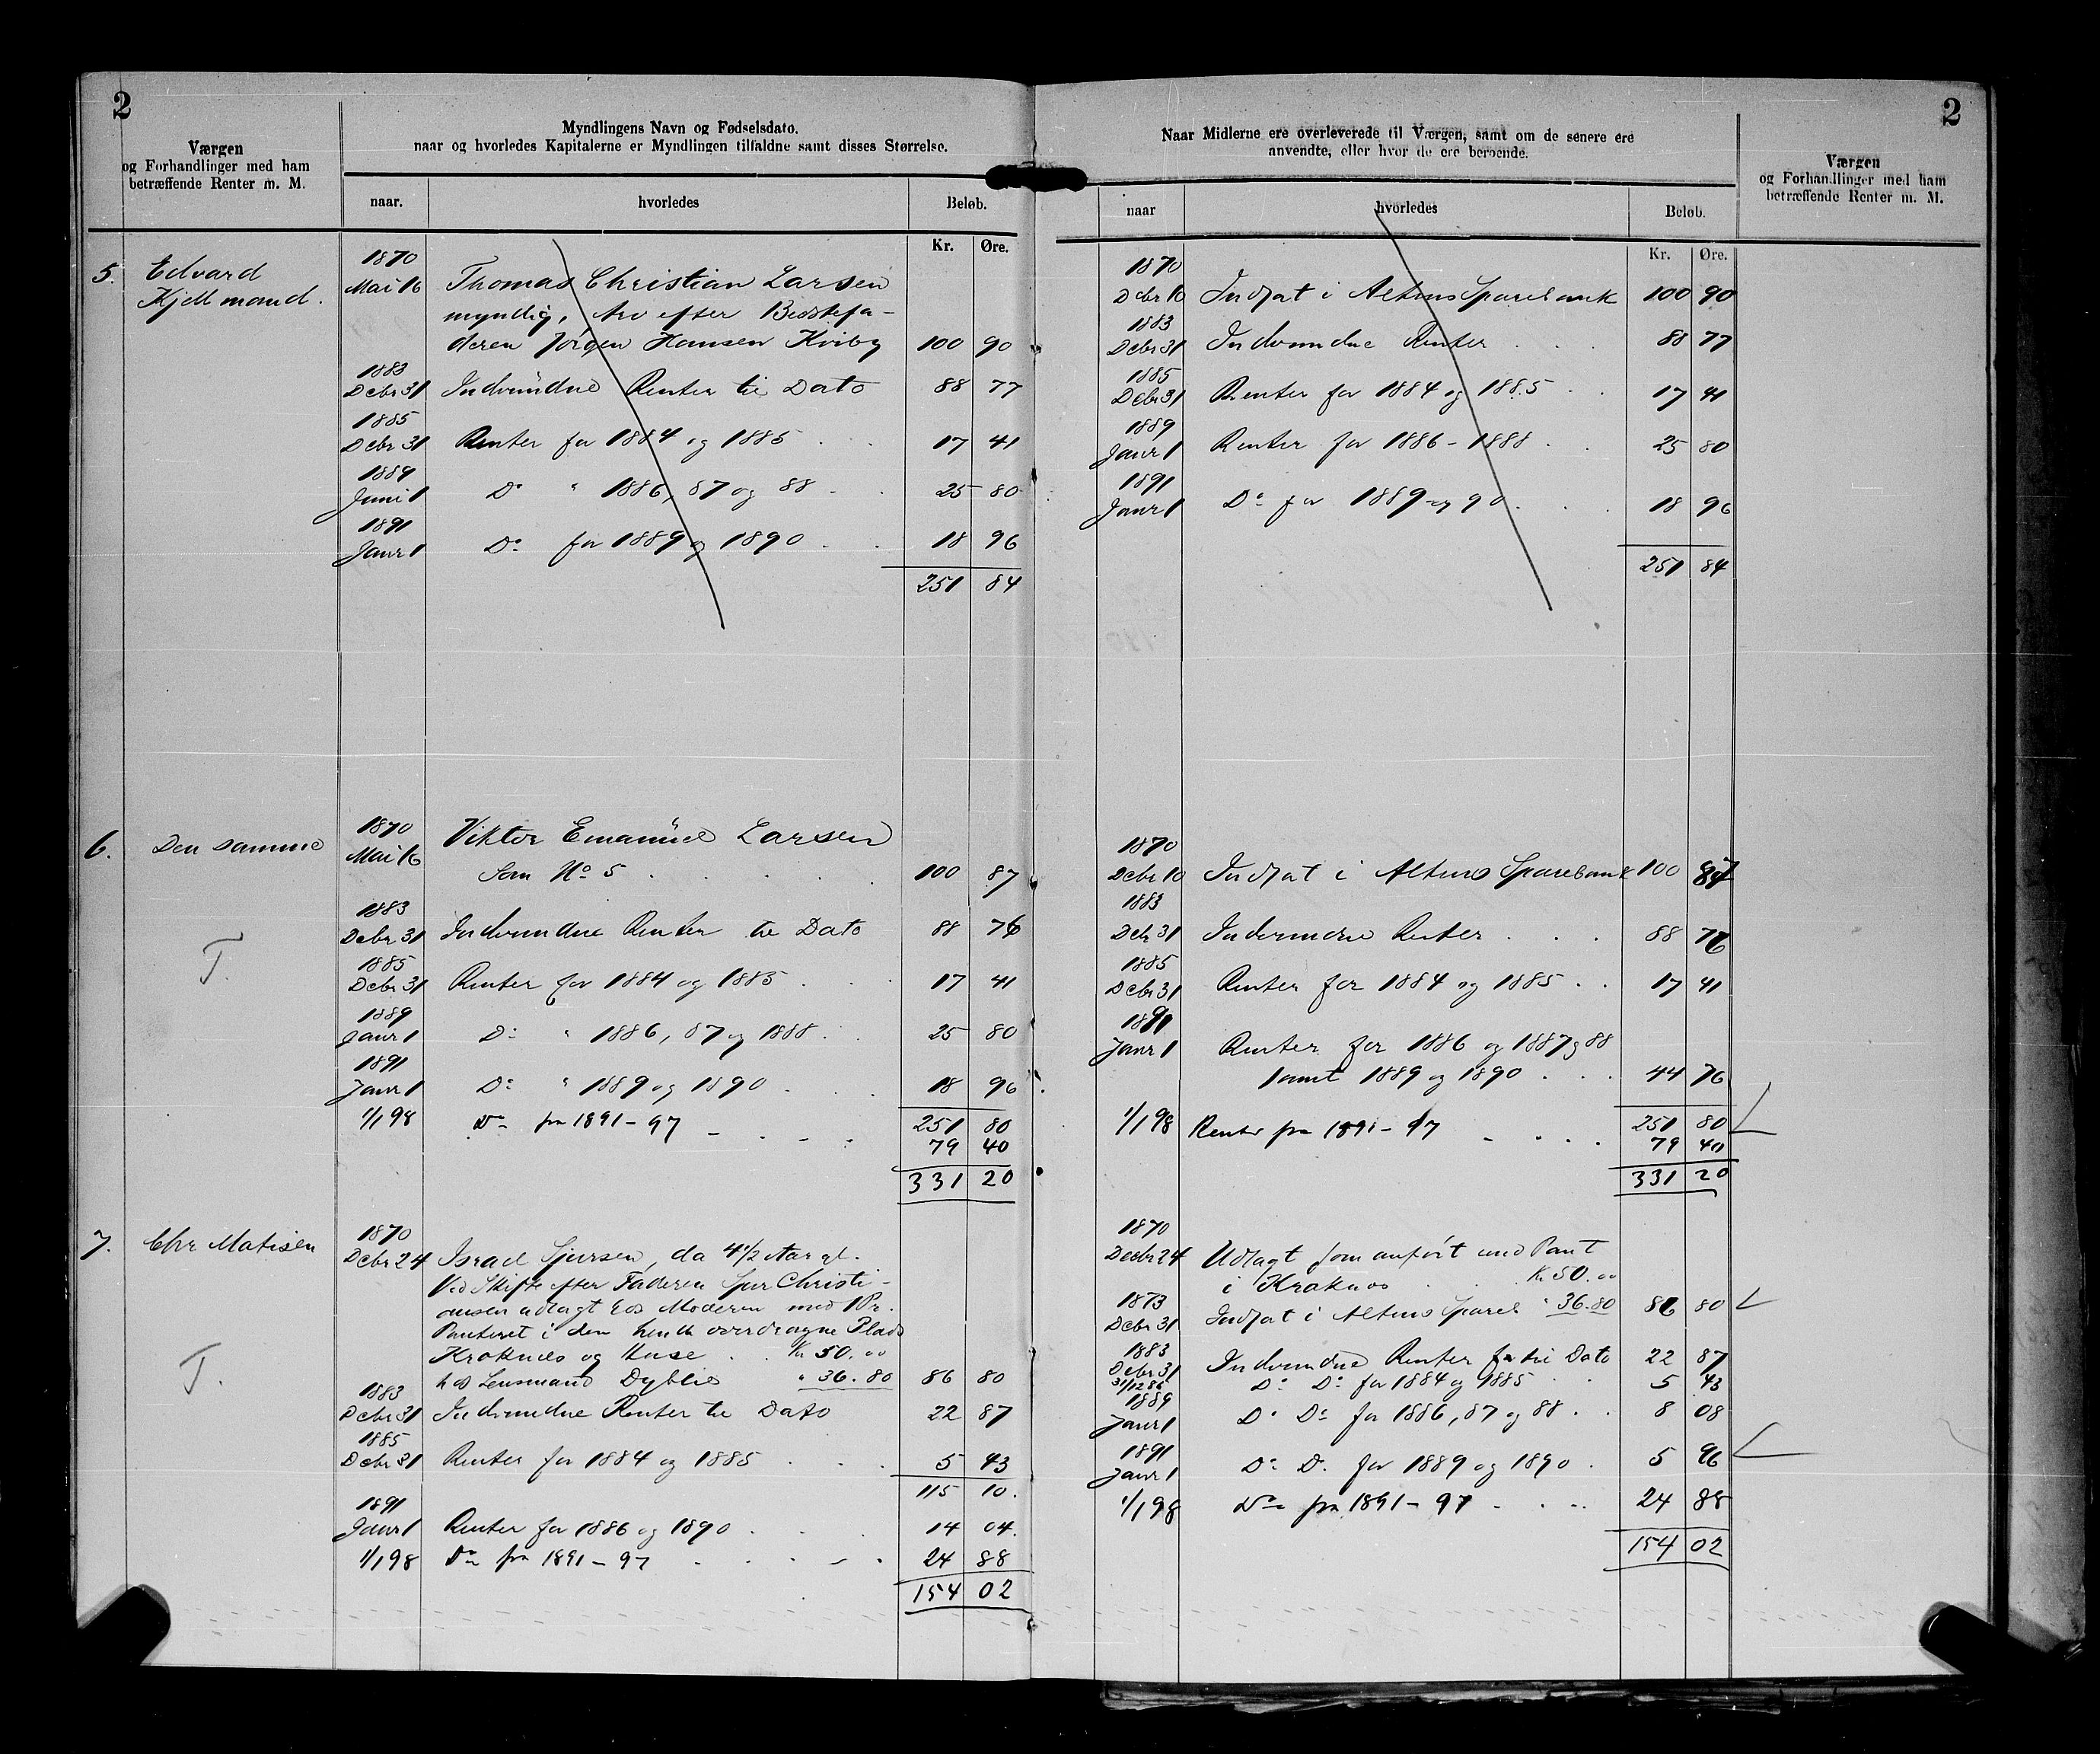 2
Værgen
og Forhandlinger med ham
betræffende Renter m. M.
Myndlingens Navn og Fødselsdato.
naar og hvorledes Kapitalerne er Myndlingen tilfaldne samt disses Størrelse.
naar.
hvorledes
Beløb.
Kr. Øre.
5. Edvard
Kjellmand.
1870
Mai 16 Thomas Christian Larsen
myndig, Arv efter Bedstefa-
deren Jørgen Hansen Kviby 100 90
1883
Decbr 31 Indvundne Renter til Dato 88 77
1885
Decbr 31 Renter for 1884 og 1885 17 41
1889
Juni 1 Do " 1886, 87 og 88 25 80
1891
Janr 1 Do for 1889 og 1890 18 96
251 84
6. Den samme
1870
Mai 16 Viktor Emanuel Larsen
Som No 5 100 87
1883
Decbr 31 Indvundne Renter til Dato 88 76
T.
1885
Decbr 31 Renter for 1884 og 1885 17 41
1889
Janr 1 Do " 1886, 87 og 1888 25 80
1891
Janr 1 Do " 1889 og 1890 18 96
251 80
1/1 98 Do fra 1891-97 79 40
331 20
7. Chr Matisen
1870
Decbr 24 Israel Sjursen, da 4 1/2 Aar gl.
Ved Skifte efter Faderen Sjur Christi-
ansen udlagt hos Moderen med 1 Pr.
Panteret i den hende overdragne Plads
Kraknes og Huse Kr 50.00
hos Lensmand Dyblie " 36.80 86 80
T.
1883
Decbr 31 Indvundne Renter til Dato 22 87
1885
Decbr 31 Renter for 1884 og 1885 5 43
115 10.
1891
Janr 1 Renter for 1886 og 1890 14 04.
1/1 98 Do fra 1891-97 24 88
154 02
2
Naar Midlerne ere overleverede til Værgen, samt om de senere ere
anvendte, eller hvor de ere beroende.
Værgen
og Forhandlinger med ham
betræffende Renter m. M.
naar
hvorledes
Beløb.
Kr. Øre.
1870
Decbr 10 Indsat i Altens Sparebank 100 90
1883
Decbr 31 Indvundne Renter 88 77
1885
Decbr 31 Renter for 1884 og 1885 17 41
1889
Janr 1 Renter for 1886-1888 25 80
1891
Janr 1 Do for 1889 og 90 18 96
251 84
1870
Decbr 10 Indsat i Altens Sparebank 100 87
1883
Decbr 31 Indvundne Renter 88 76
1885
Decbr 31 Renter for 1884 og 1885 17 41
1891
Janr 1 Renter for 1886 og 1887 og 88
samt 1889 og 1890 44 76
251 80
1/1 98 Renter fra 1891-97 79 40
331 20
1870
Decbr 24 Udlagt som anført med Pant
i Kraknes Kr 50.00
1873
Decbr 31 Indsat i Altens Spareb " 36.80 86 80
1883
Decbr 31 Indvundne Renter til Dato 22 87
31/12 86 Do Do for 1884 og 1885 5 43
1889
Janr 1 Do Do for 1886, 87 og 88 8 08
1891
Janr 1 Do Do for 1889 og 1890 5 96
1/1 98 Do fra 1891-97 24 88
154 02